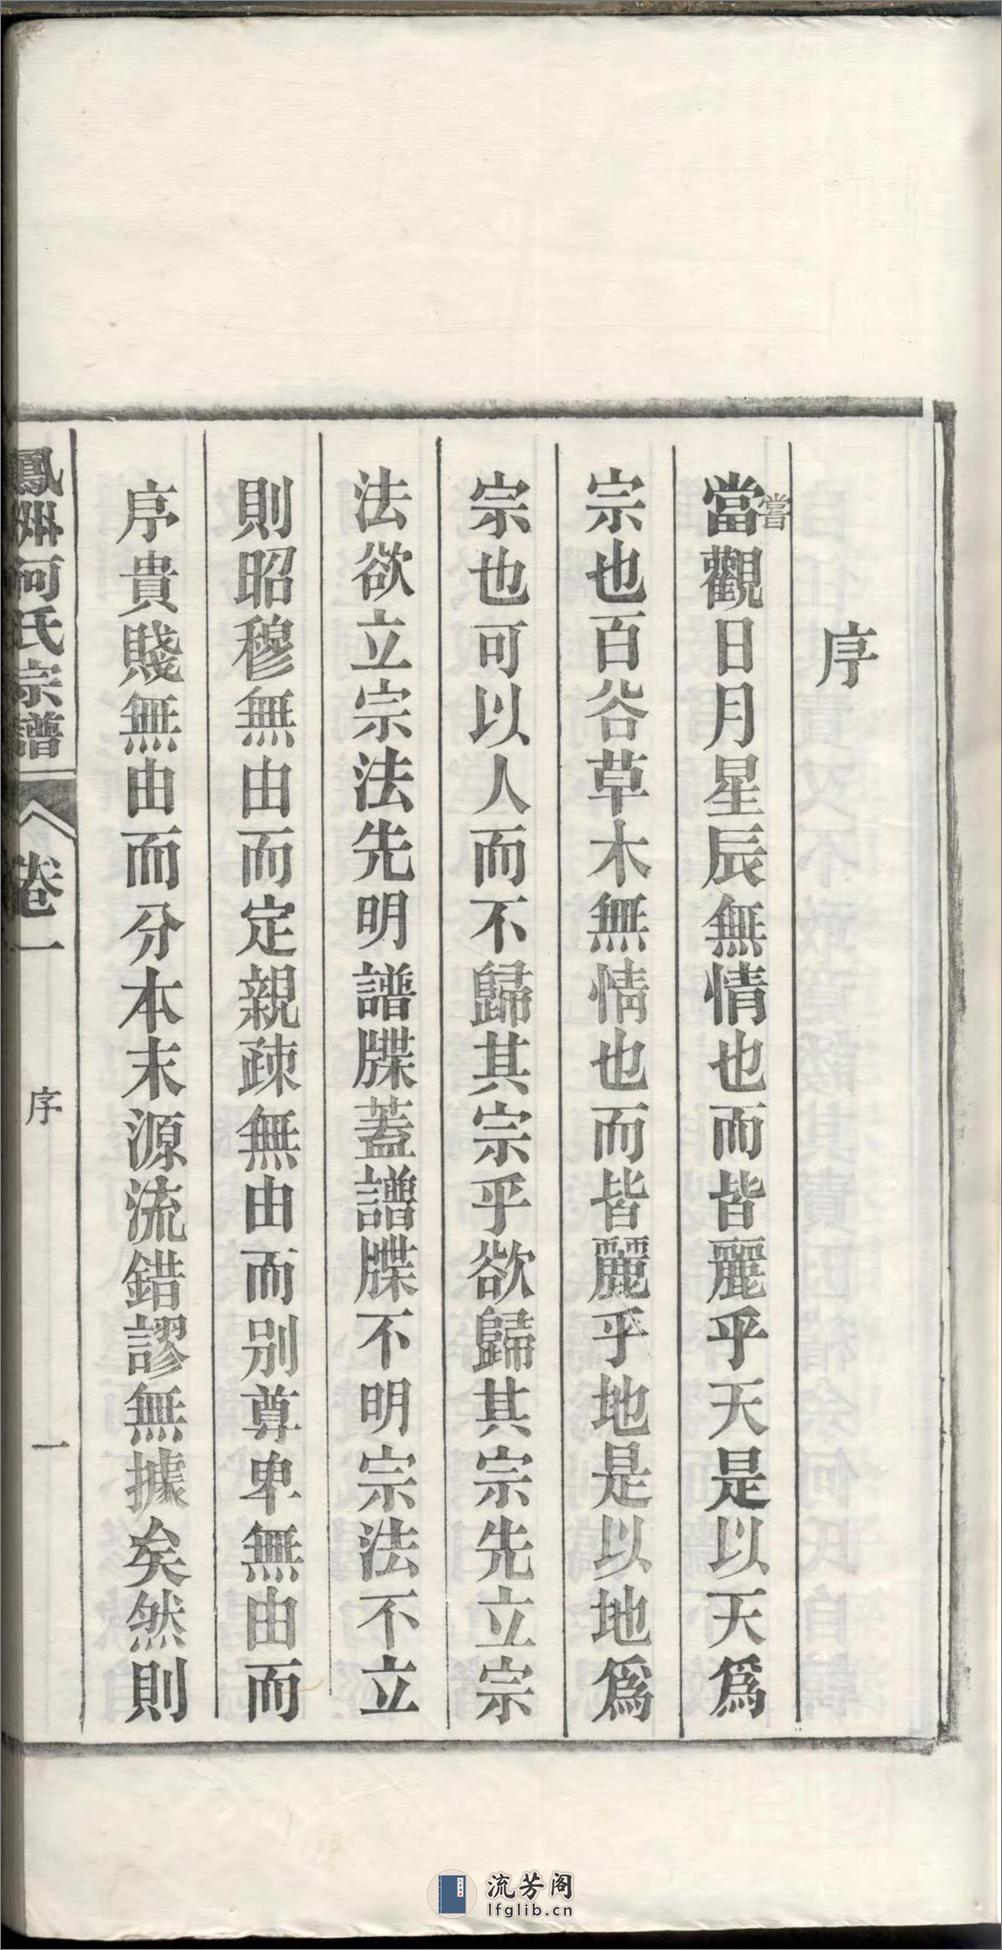 序
當觀日月星辰無情也而皆麗乎天是以天為
嘗
宗也百谷草木無情也而皆麗乎地是以地為
宗也可以人而不歸其宗乎欲歸其宗先立宗
法欲立宗法先明譜牒蓋譜牒不明宗法不立
則昭穆無由而定親疎無由而别尊卑無由而
序貴賤無由而分本末源流錯謬無據矣然則
鳳州何氏宗譜
卷一
序
一
流芳阁
lfglib.cn